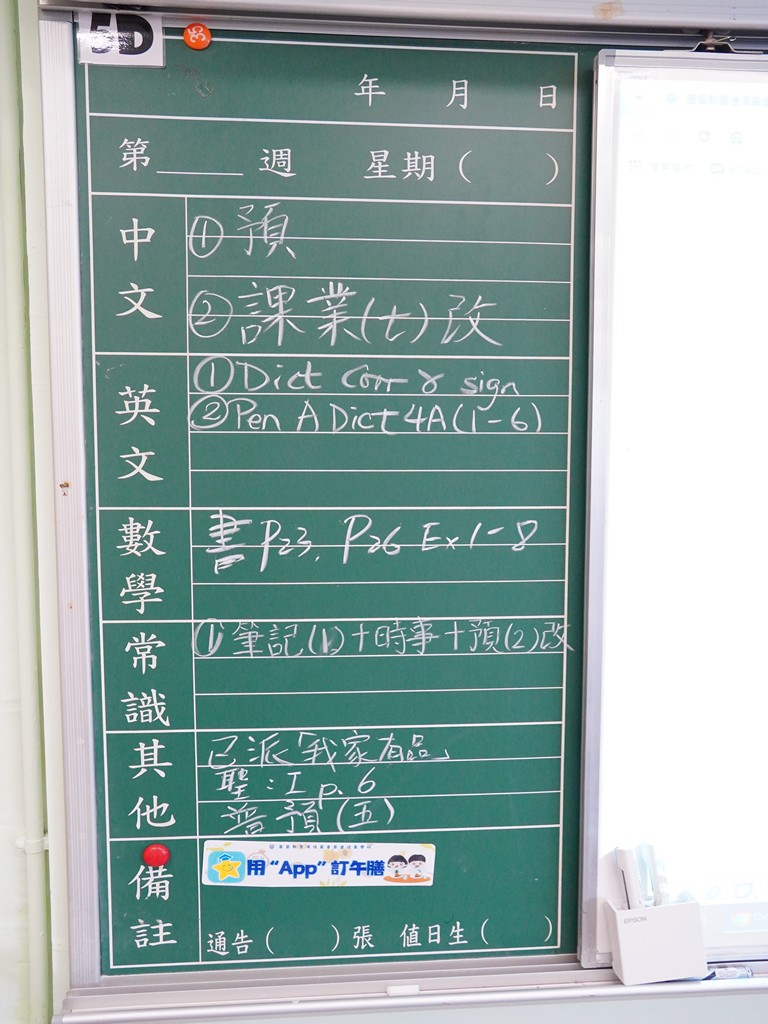 5D
年 月 日
第____週 星期( )
中文
① 預
② 課業(七)改
英文
① Dict Corr & sign
② Pen A Dict 4A (1-6)
數學
書 P23, P26 Ex 1-8
常識
① 筆記(1)+時事+預(2)改
其他
已派「我家有品」
聖:I p.6
普預(五)
備註
用“App”訂午膳
通告( )張 值日生( )
EPSON